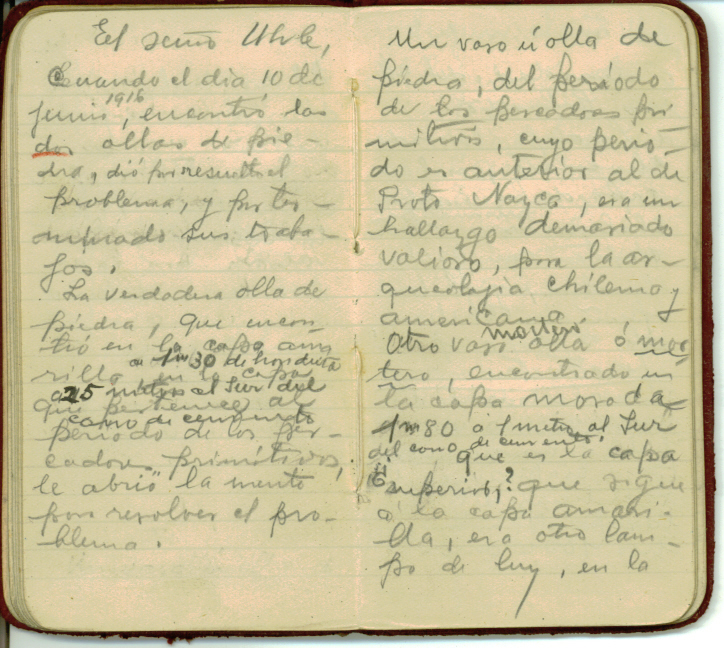 El señor Uhle,
Cuando el dia 10 de
junio 1916, encontró las
dos ollas de pie-
dra, dió por resuelto el
problema, y por ter-
minado sus traba-
jos.
La verdadera olla de
piedra, que encon-
tró en la capa ama
rilla en la capa
a 1m30 de hondura
a 25 metros al Sur del
que pertenece al
cono de cemento
período de los pes-
cadores primitivos,
le abrió la mente
para resolver el pro-
blema.
Un vaso ú olla de
piedra, del período
de los pescadores pri
mitivos, cuyo perío-
do es anterior al de
Proto Nazca, era un
hallazgo demasiado
valioso, para la ar-
queologia chilena y
americana.
Otro vaso olla ó mor
mortero
tero, encontrado en
la capa morada
1m80 a 1 metro al Sur
del cono de cemento
que es la capa
superior,? que sigue
á la capa amari-
lla, era otro lam-
po de luz, en la